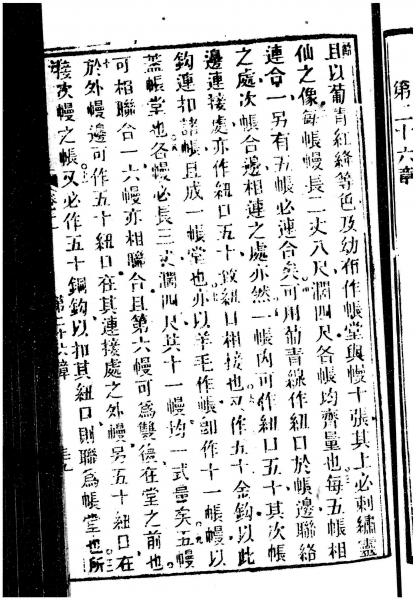 第二十六章
節 且以葡青紅絳等色及幼布作帳堂與幔十張其上必刺繡靈
仙之像每帳幔長二丈八尺濶四尺各帳均齊量也每五帳相
連合一另有五帳必連合矣可用葡青線作紐口於帳邊聯絡
之處次帳合邊相連之處亦然一帳內可作紐口五十其次帳
邊連接處亦作紐口五十致紐口相接也又作五十金鈎以此
鈎連扣諸帳且成一帳堂也亦以羊毛作帳卽作十一帳幔以
蓋帳堂也各幔必長三丈濶四尺其十一幔均一式量矣五幔
可相聯合一六幔亦相聯合且第六幔可為雙倍在堂之前也
於外幔邊可作五十紐口在其連接處之外幔另五十紐口在
接次幔之帳又必作五十銅鈎以扣其紐口則聯為帳堂也所
第二十六章